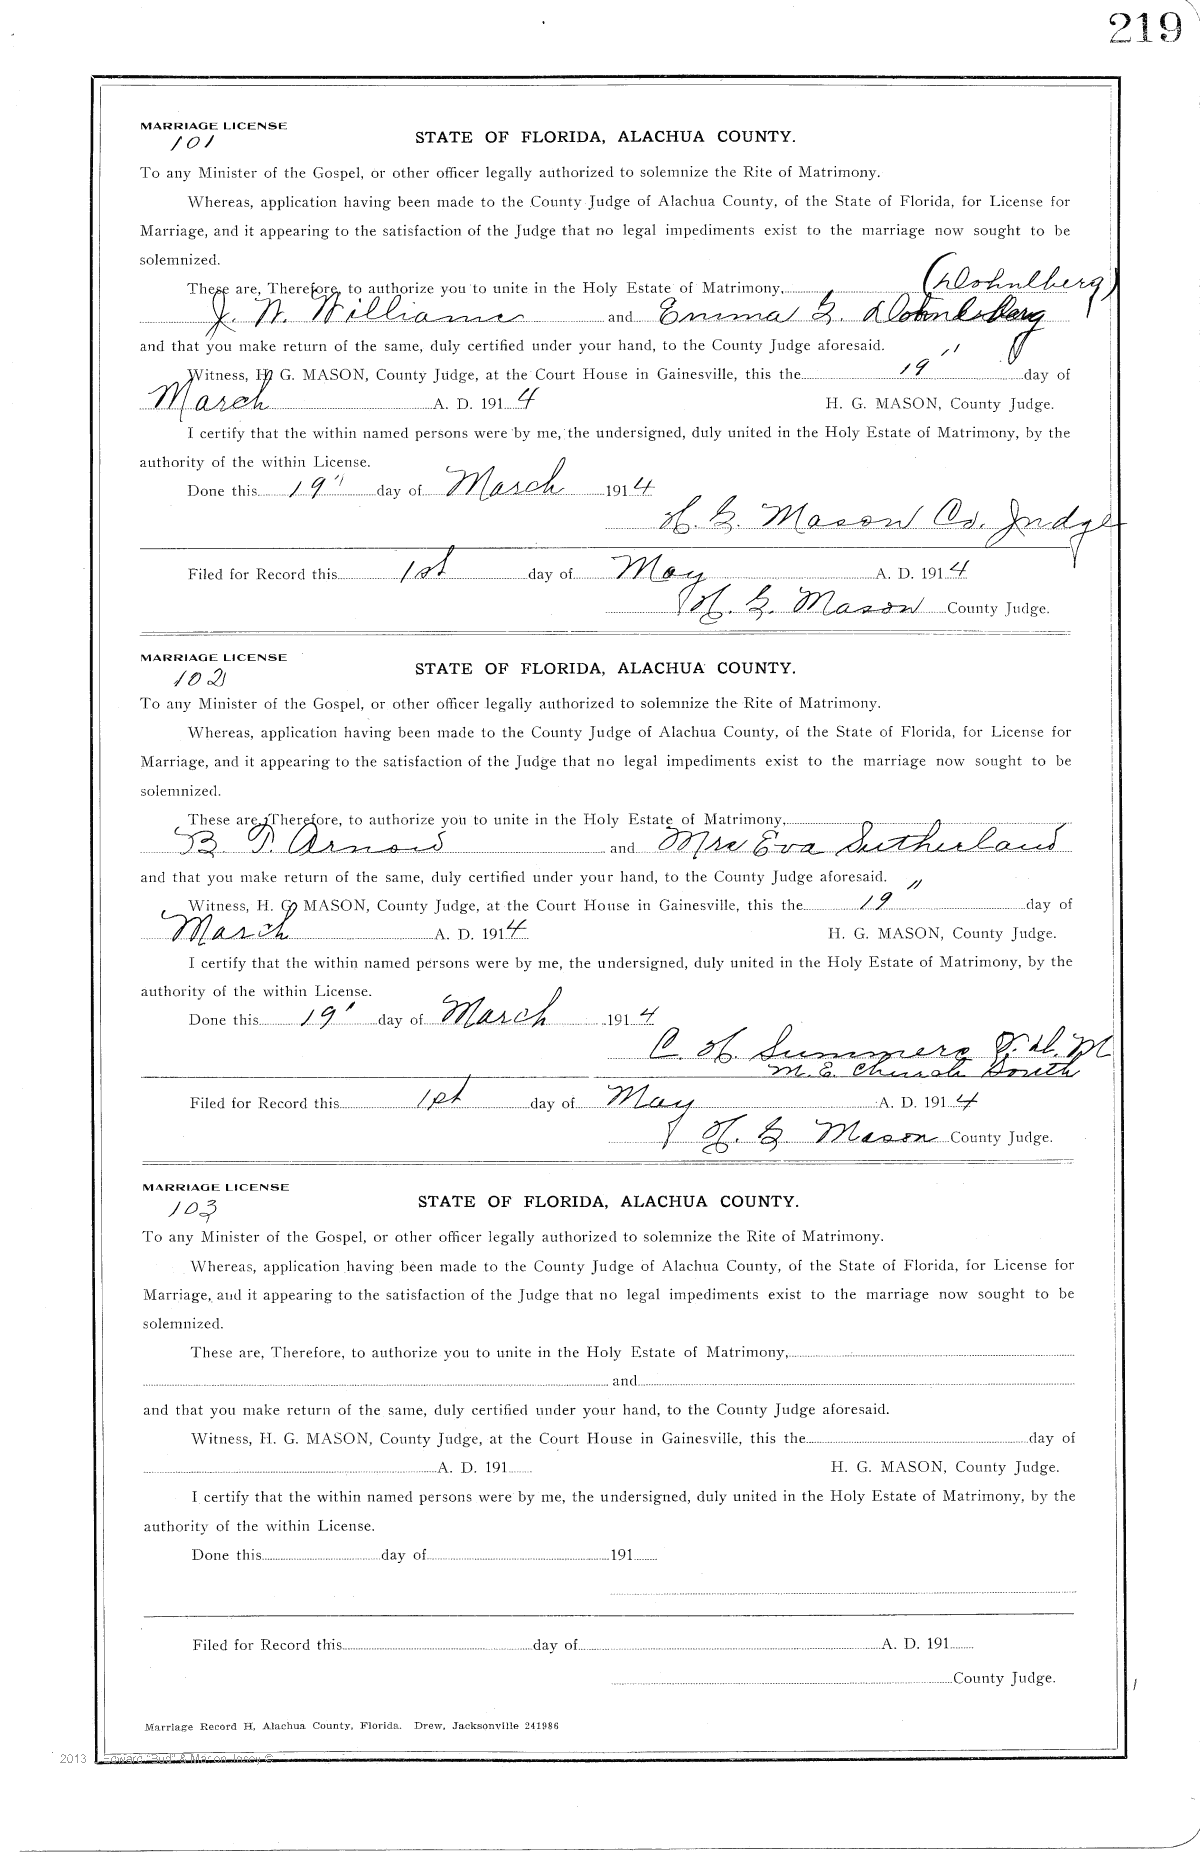 219
MARRIAGE LICENSE
101
STATE OF FLORIDA, ALACHUA COUNTY.
To any Minister of the Gospel, or other officer legally authorized to solemnize the Rite of Matrimony.
Whereas, application having been made to the County Judge of Alachua County, of the State of Florida, for License for
Marriage, and it appearing to the satisfaction of the Judge that no legal impediments exist to the marriage now sought to be
solemnized.
These are, Therefore, to authorize you to unite in the Holy Estate of Matrimony,
J. W. Williams and Emma G.
and that you make return of the same, duly certified under your hand, to the County Judge aforesaid.
Witness, H. G. MASON, County Judge, at the Court House in Gainesville, this the 19" day of
March A. D. 1914 H. G. MASON, County Judge.
I certify that the within named persons were by me, the undersigned, duly united in the Holy Estate of Matrimony, by the
authority of the within License.
Done this 19" day of March 1914
H. G. Mason Co. Judge
Filed for Record this 1st day of May A. D. 1914
H. G. Mason County Judge.
MARRIAGE LICENSE
102
STATE OF FLORIDA, ALACHUA COUNTY.
To any Minister of the Gospel, or other officer legally authorized to solemnize the Rite of Matrimony.
Whereas, application having been made to the County Judge of Alachua County, of the State of Florida, for License for
Marriage, and it appearing to the satisfaction of the Judge that no legal impediments exist to the marriage now sought to be
solemnized.
These are, Therefore, to authorize you to unite in the Holy Estate of Matrimony,
B. T. Arnow and Mrs Eva Sutherland
and that you make return of the same, duly certified under your hand, to the County Judge aforesaid.
Witness, H. G. MASON, County Judge, at the Court House in Gainesville, this the 19" day of
March A. D. 1914 H. G. MASON, County Judge.
I certify that the within named persons were by me, the undersigned, duly united in the Holy Estate of Matrimony, by the
authority of the within License.
Done this 19' day of March 1914
C. H. Summers
M. E. Church South
Filed for Record this 1st day of May A. D. 1914
H. G. Mason County Judge.
MARRIAGE LICENSE
103
STATE OF FLORIDA, ALACHUA COUNTY.
To any Minister of the Gospel, or other officer legally authorized to solemnize the Rite of Matrimony.
Whereas, application having been made to the County Judge of Alachua County, of the State of Florida, for License for
Marriage, and it appearing to the satisfaction of the Judge that no legal impediments exist to the marriage now sought to be
solemnized.
These are, Therefore, to authorize you to unite in the Holy Estate of Matrimony,
and
and that you make return of the same, duly certified under your hand, to the County Judge aforesaid.
Witness, H. G. MASON, County Judge, at the Court House in Gainesville, this the day of
A. D. 191 H. G. MASON, County Judge.
I certify that the within named persons were by me, the undersigned, duly united in the Holy Estate of Matrimony, by the
authority of the within License.
Done this day of 191
Filed for Record this day of A. D. 191
County Judge.
Marriage Record H, Alachua County, Florida. Drew, Jacksonville 241986
2013